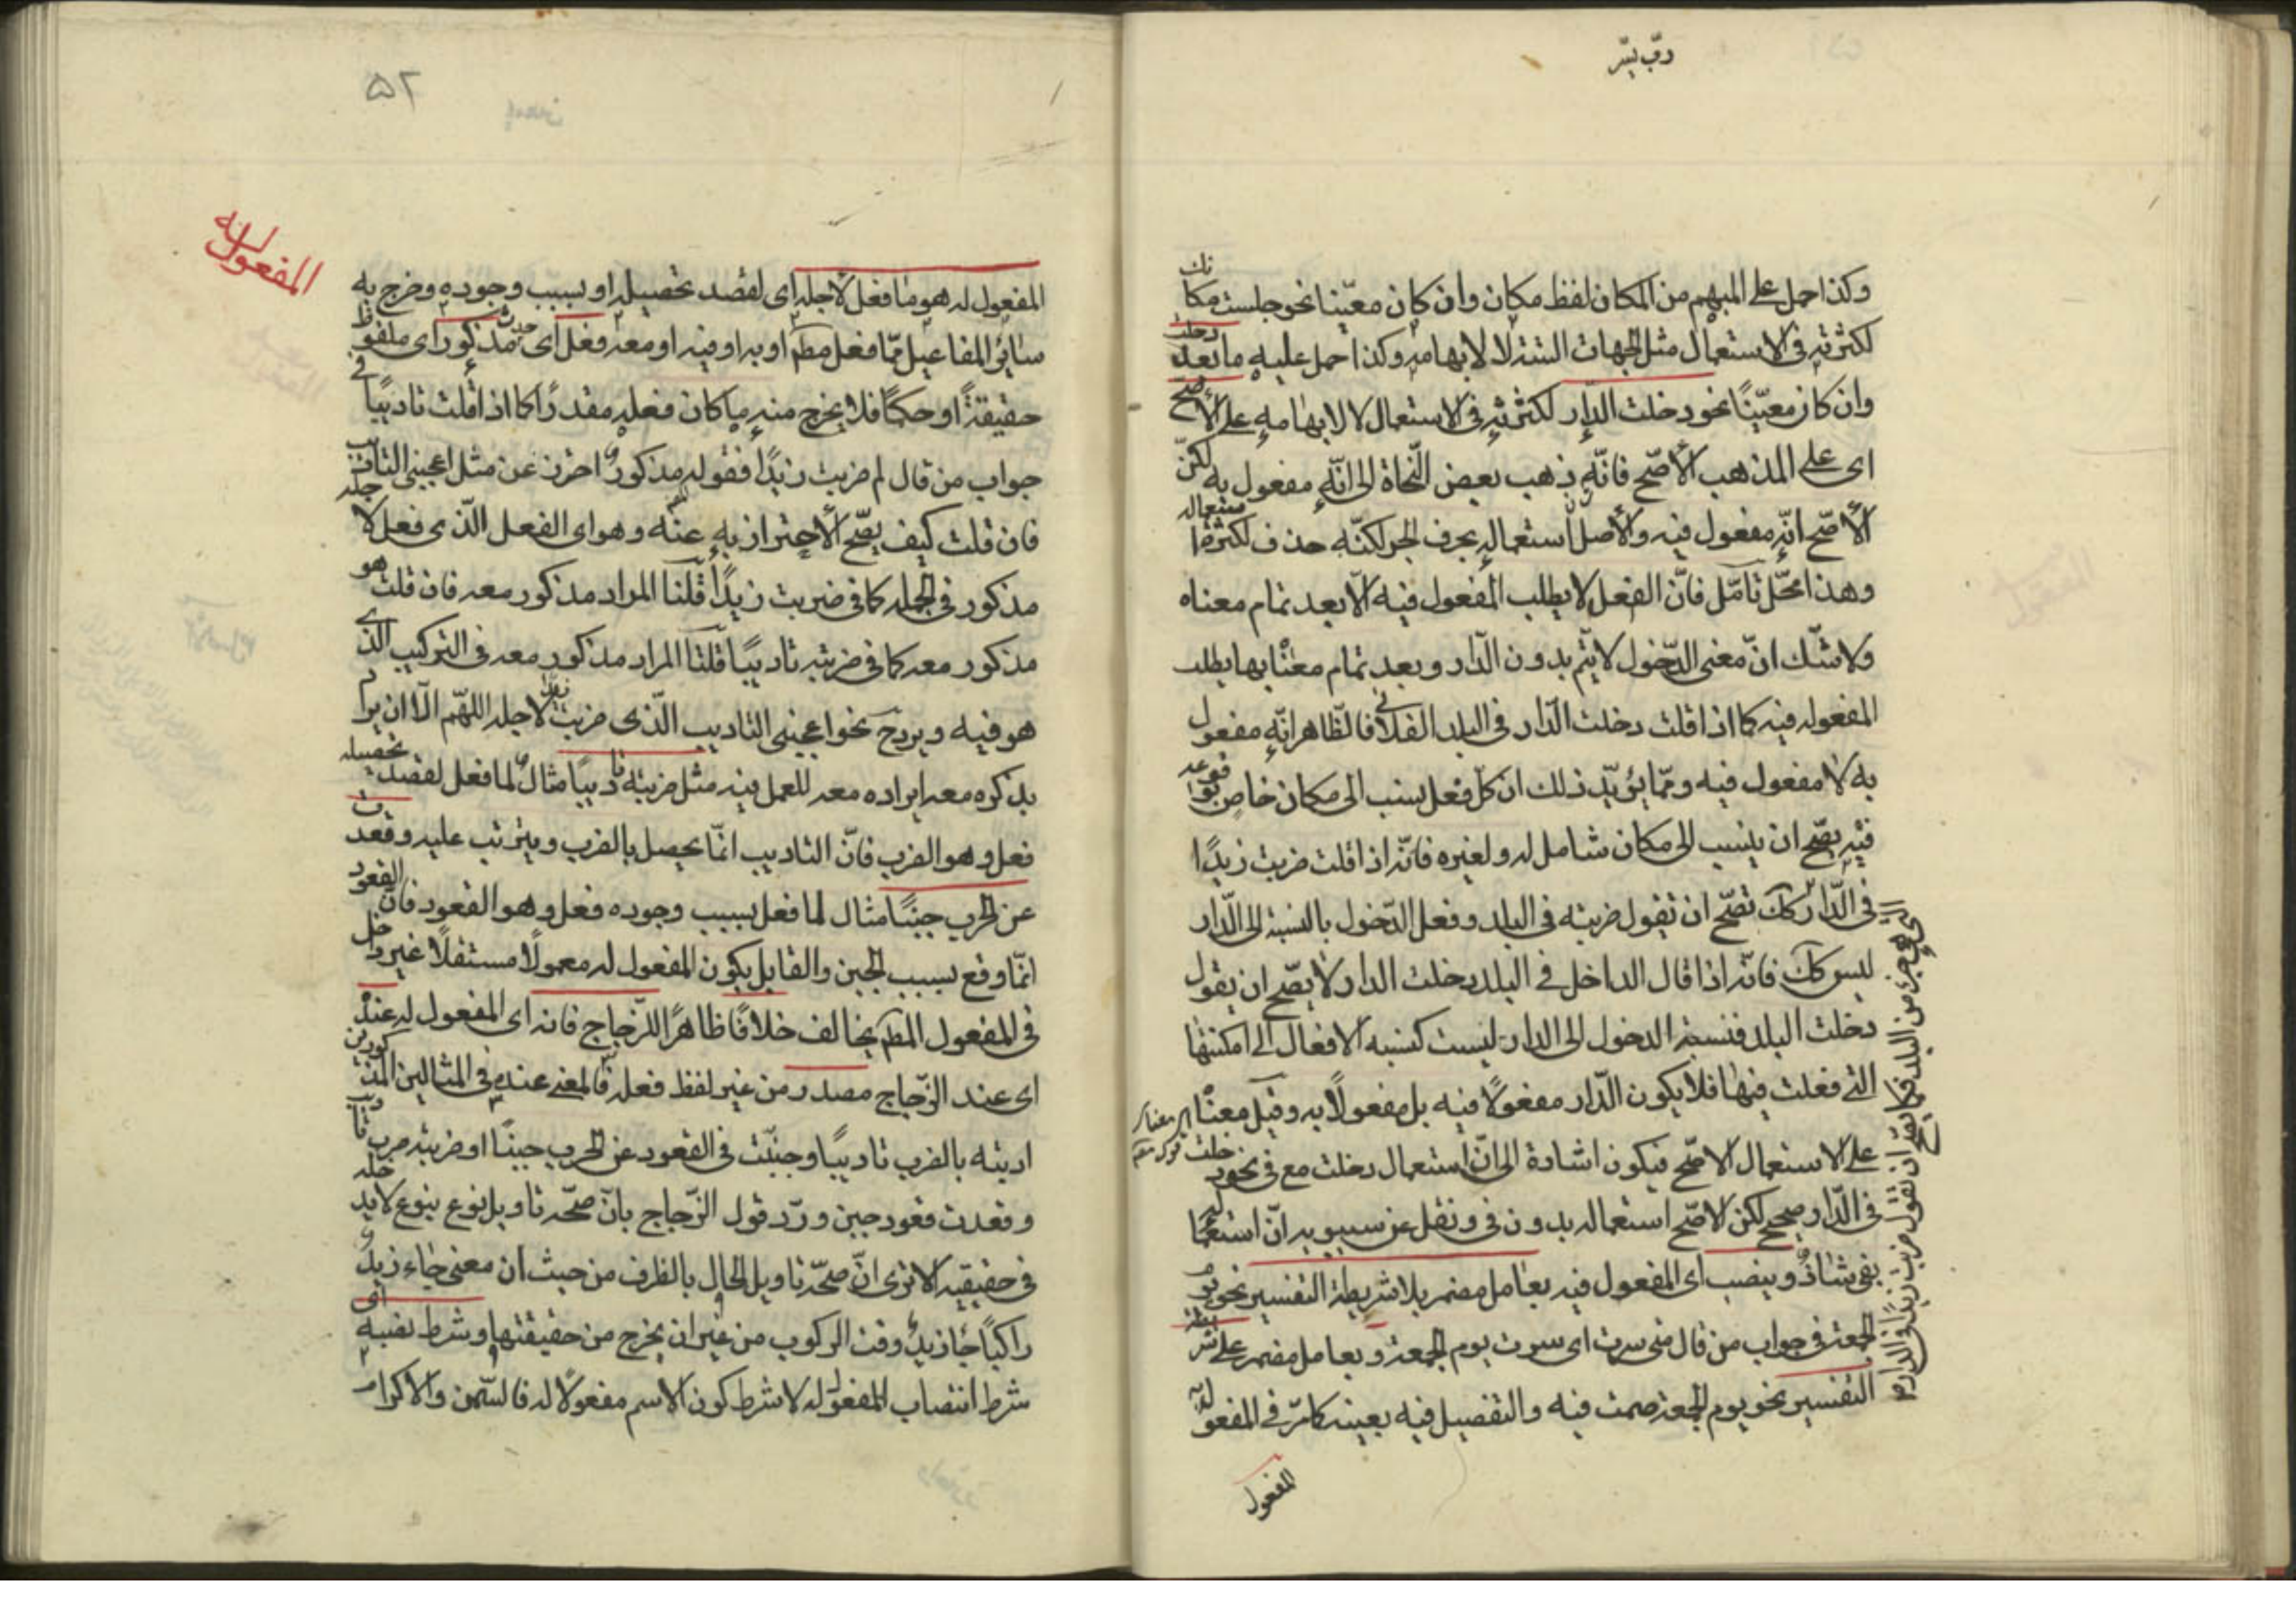 ربّ يسّر
وكذا حمل على المبهم من المكان لفظ مكان وان كان معيّنا نحو جلست مكانك
لكثرته فى الاستعمال مثل الجهات الستة لا لابهامه وكذا حمل عليه ما بعد دخلت
وان كان معيّنًا نحو دخلت الدار لكثرته فى الاستعمال لا لابهامه على الاصح
اى على المذهب الاصّح فانّه ذهب بعض النّحاة الى انّه مفعول به لكنّ
الأصّح انّه مفعول فيه والأصل استعماله بحرف الجر لكنّه حذف لكثرة استعماله
وهذا محّل تامّل فانّ الفعل لا يطلب المفعول فيه الّا بعد تمام معناه
ولا شّك انّ معنى الدّخول لا يتّم بدون الدّار وبعد تمام معناه بها يطلب
المفعول فيه كما اذا قلت دخلت الدّار فى البلد الفلانى فالظّاهر انّه مفعول
به لا مفعول فيه وممّا يؤيّد ذلك ان كلّ فعل نسب الى مكان خاص بوقوعه
فيه يصّح ان ينسب الى مكان شامل له ولغيره فانّه اذا قلت ضربت زيدًا
فى الدّار كك تصّح ان تقول ضربته فى البلد وفعل الدّخول بالنسبة الى الدّار
ليس كك فانّه اذا قال الداخل فى البلد دخلت الدار لا يصّح ان يقول
دخلت البلد فنسبة الدخول الى الدار ليست كنسبة الافعال الى امكنتها
التى فعلت فيها فلا يكون الدّار مفعولًا فيه بل مفعولًا به وقيل معناه
على الاستعمال الاصّح فيكون اشارة الى انّ استعمال دخلت مع فى نحو دخلت
فى الدّار صحيح لكن الاصّح استعماله بدون فى ونقل عن سيبويه انّ استعماله
بفى شاذّ وينصب اى المفعول فيه بعامل مضمر بلا شريطة التفسير نحو يوم
الجمعة فى جواب من قال متى سرت اى سرت يوم الجمعة وبعامل مضمر على شريطة
التفسير نحو يوم الجمعة صمت فيه والتفصيل فيه بعينه كما مرّ فى المفعول به
المفعول
٥٢
المفعول له
المفعول له هو ما فعل لاجله اى لقصد تحصيله او بسبب وجوده وخرج به
سائر المفاعيل ممّا فعل مطلقا او به او فيه او معه فعل اى حدث مذكور اى ملفوظ
حقيقةً او حكمًا فلا يخرج منه ما كان فعله مقدرًا كما اذا قلت تاديبًا فى
جواب من قال لم ضربت زيدًا فقوله مذكور احتراز عن مثل اعجبنى التاديب
فان قلت كيف يصّح الأحتراز به عنه وهو اى الفعل الّذى فعل لاجله
مذكور فى الجمله كما فى ضربت زيدًا قلنا المراد مذكور معه فان قلت هو
مذكور معه كما فى ضربته تاديبًا قلنا المراد مذكور معه فى التركيب الذى
هو فيه ويردح نحو اعجبنى التاديب الّذى ضربت لاجله اللهّم الّا ان يراد
بذكره معه ايراده معه للعمل فيه مثل ضربته تاديبًا مثال لما فعل لقصد تحصيله
فعل وهو الضرب فانّ التاديب انّما يحصل بالضرب ويترتب عليه وقعدت
عن الحرب جبنًا مثال لما فعل بسبب وجوده فعل وهو القعود فانّ القعود
انّما وقع بسبب الجبن والقايل بكون المفعول له معمولًا مستقلًا غير داخل
فى المفعول المطلق يخالف خلافًا ظاهرًا للزّجاج فانه اى المفعول له عنده
اى عند الزّجاج مصدر من غير لفظ فعله فالمعنى عنده فى المثالين المذكورين
ادبته بالضرب تاديبًا وجبنت فى القعود عن الحرب جبنًا او ضربته ضرب تاديب
وقعدت قعود جبن وردّ قول الزّجاج بانّ صحّة تاويل نوع بنوع لا يدخله
فى حقيقته الا ترى انّ صحّة تاويل الحال بالظرف من حيث ان معنى جاء زيد
راكبًا جاء زيد وقت الركوب من غير ان يخرج من حقيقتها وشرط نصبه اى
شرط انتصاب المفعول له لا شرط كون الاسم مفعولًا له فالسّمن والاكرام